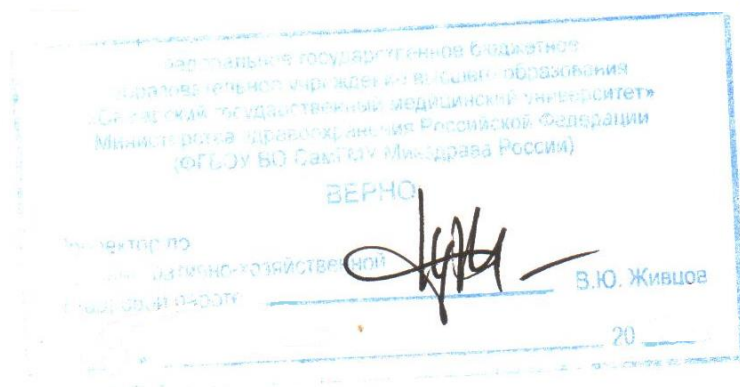 Федеральное государственное бюджетное
образовательное учреждение высшего образования
«Самарский государственный медицинский университет»
Министерства здравоохранения Российской Федерации
(ФГБОУ ВО СамГМУ Минздрава России)
ВЕРНО
Проректор по
административно-хозяйственной
работе
В.Ю. Живцов
20